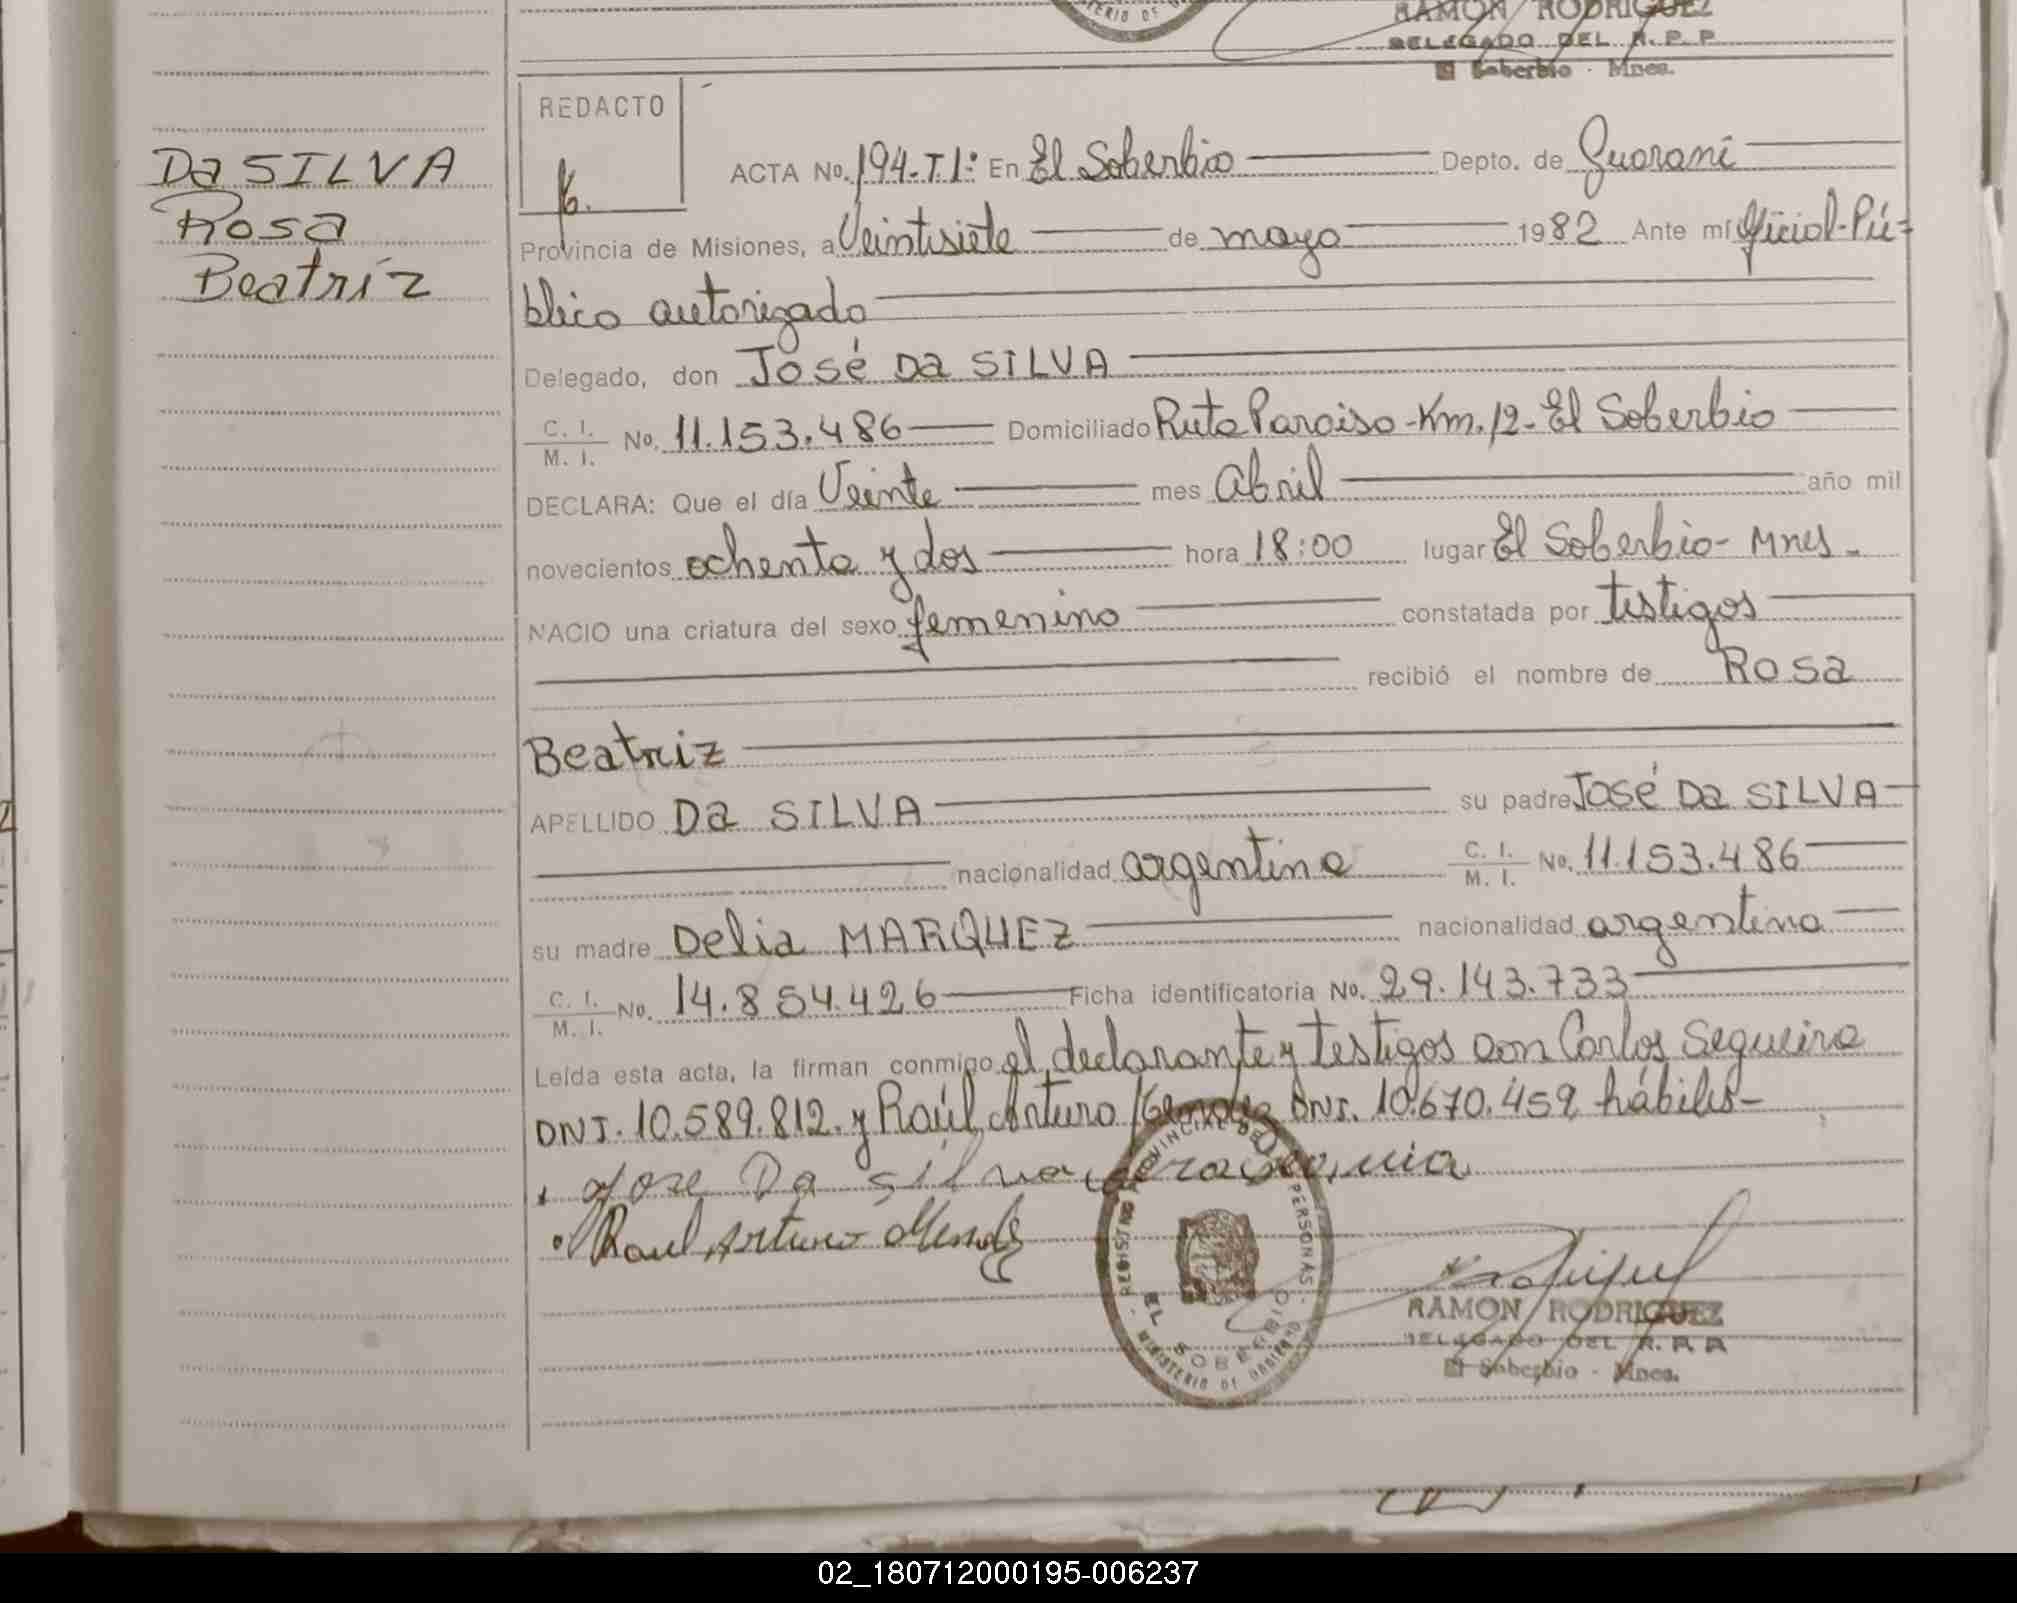 RAMON RODRIGUEZ
DELEGADO DEL R. P. P.
El Soberbio - Mnes.
Da SILVA
Rosa
Beatriz
REDACTO
ACTA No. 194-T.I: En El Soberbio Depto. de Guaraní
Provincia de Misiones, a Veintisiete de mayo 1982 Ante mí Oficial-Pú-
blico autorizado
Delegado, don José Da SILVA
C. I. / M. I. No. 11.153.486 Domiciliado Ruta Paraiso-Km.12-El Soberbio
DECLARA: Que el día Veinte mes abril año mil
novecientos ochenta y dos hora 18:00 lugar El Soberbio-Mnes-
NACIO una criatura del sexo femenino constatada por testigos
recibió el nombre de Rosa
Beatriz
APELLIDO Da SILVA su padre José Da SILVA
nacionalidad argentina C. I. / M. I. No. 11.153.486
su madre Delia MARQUEZ nacionalidad argentina
C. I. / M. I. No. 14.854.426 Ficha identificatoria No. 29.143.733
Leída esta acta, la firman conmigo el declarante y testigos don Carlos Sequeira
DNI. 10.589.812. y Raúl Arturo DNI. 10.670.459 hábiles-
Jose Da silva
Raul Arturo
REGISTRO PROVINCIAL DE LAS PERSONAS
EL SOBERBIO
MINISTERIO DE GOBIERNO
RAMON RODRIGUEZ
DELEGADO DEL R. P. P.
El Soberbio - Mnes.
02_180712000195-006237